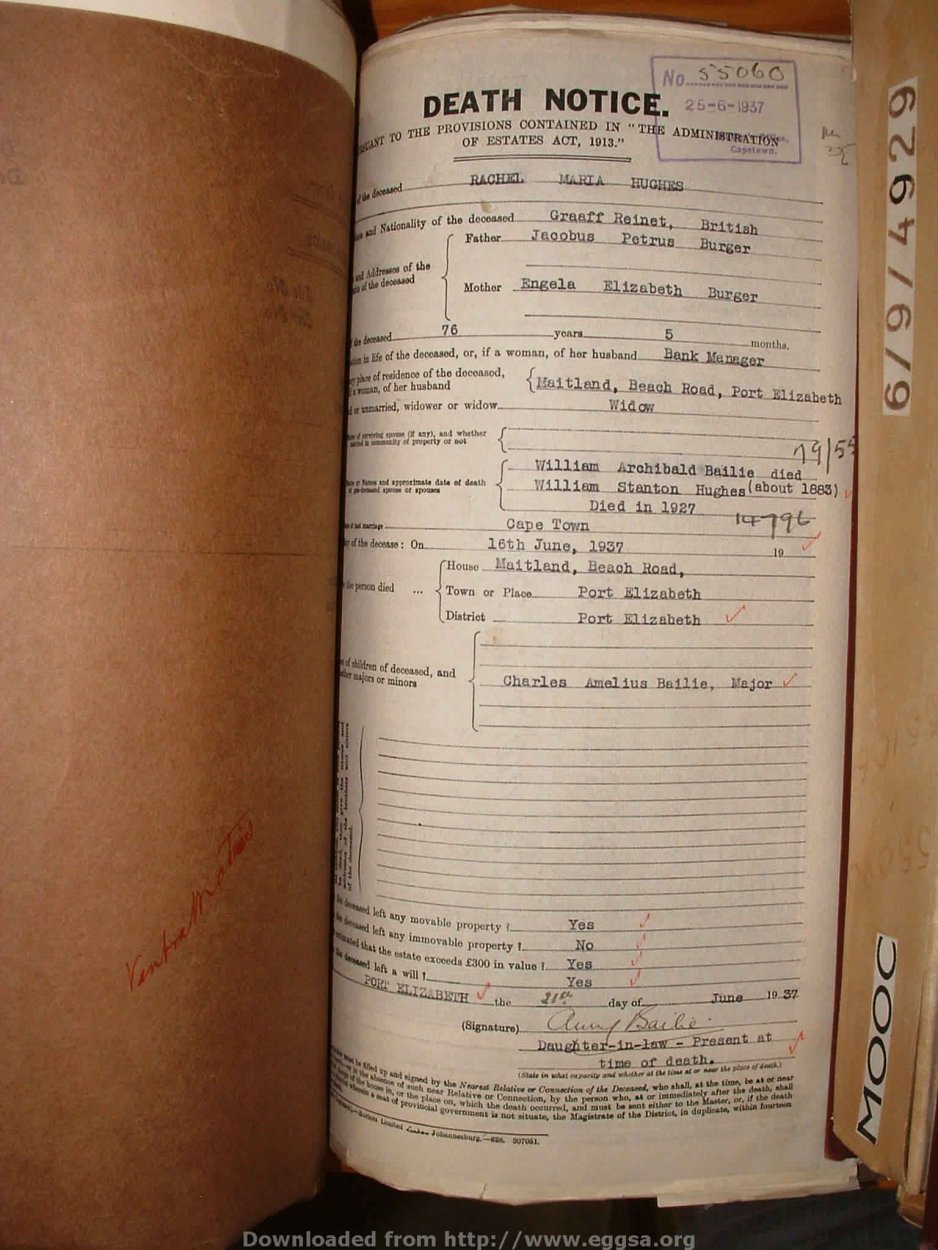 No. 55060
25-6-1937
Capetown.
DEATH NOTICE.
TO THE PROVISIONS CONTAINED IN "THE ADMINISTRATION
OF ESTATES ACT, 1913."
of the deceased RACHEL MARIA HUGHES
and Nationality of the deceased Graaff Reinet, British
Father Jacobus Petrus Burger
and Addresses of the
of the deceased
Mother Engela Elizabeth Burger
the deceased 76 years 5 months.
in life of the deceased, or, if a woman, of her husband Bank Manager
place of residence of the deceased,
a woman, of her husband
Maitland, Beach Road, Port Elizabeth
or unmarried, widower or widow Widow
of surviving spouse (if any), and whether
married in community of property or not
79/55
or Names and approximate date of death
of pre-deceased spouse or spouses
William Archibald Bailie died
William Stanton Hughes (about 1883)
Died in 1927
14796
of last marriage Cape Town
of the decease: On 16th June, 1937 19
House Maitland, Beach Road,
the person died ... Town or Place Port Elizabeth
District Port Elizabeth
of children of deceased, and
majors or minors
Charles Amelius Bailie, Major
of the deceased.
the deceased left any movable property? Yes
the deceased left any immovable property? No
that the estate exceeds £300 in value? Yes
the deceased left a will? Yes
PORT ELIZABETH the 21st day of June 1937
(Signature) Bailie
Daughter-in-law - Present at
time of death.
(State in what capacity and whether at the time at or near the place of death.)
must be filled up and signed by the Nearest Relative or Connection of the Deceased, who shall, at the time, be at or near
in the absence of such near Relative or Connection, by the person who, at or immediately after the death, shall
of the house in, or the place on, which the death occurred, and must be sent either to the Master, or, if the death
a seat of provincial government is not situate, the Magistrate of the District, in duplicate, within fourteen
Limited Johannesburg.—828. 307051.
6/9/4929
MOOC
Downloaded from http://www.eggsa.org